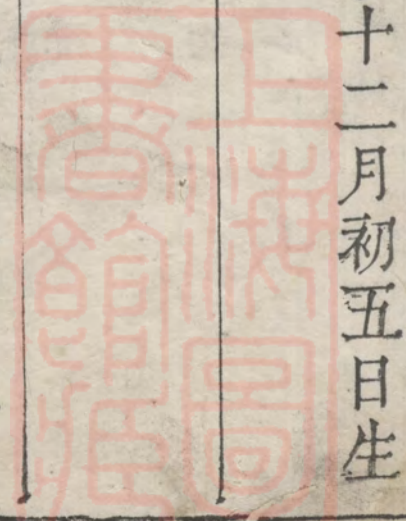 十二月初五日生
上海圖
書館藏